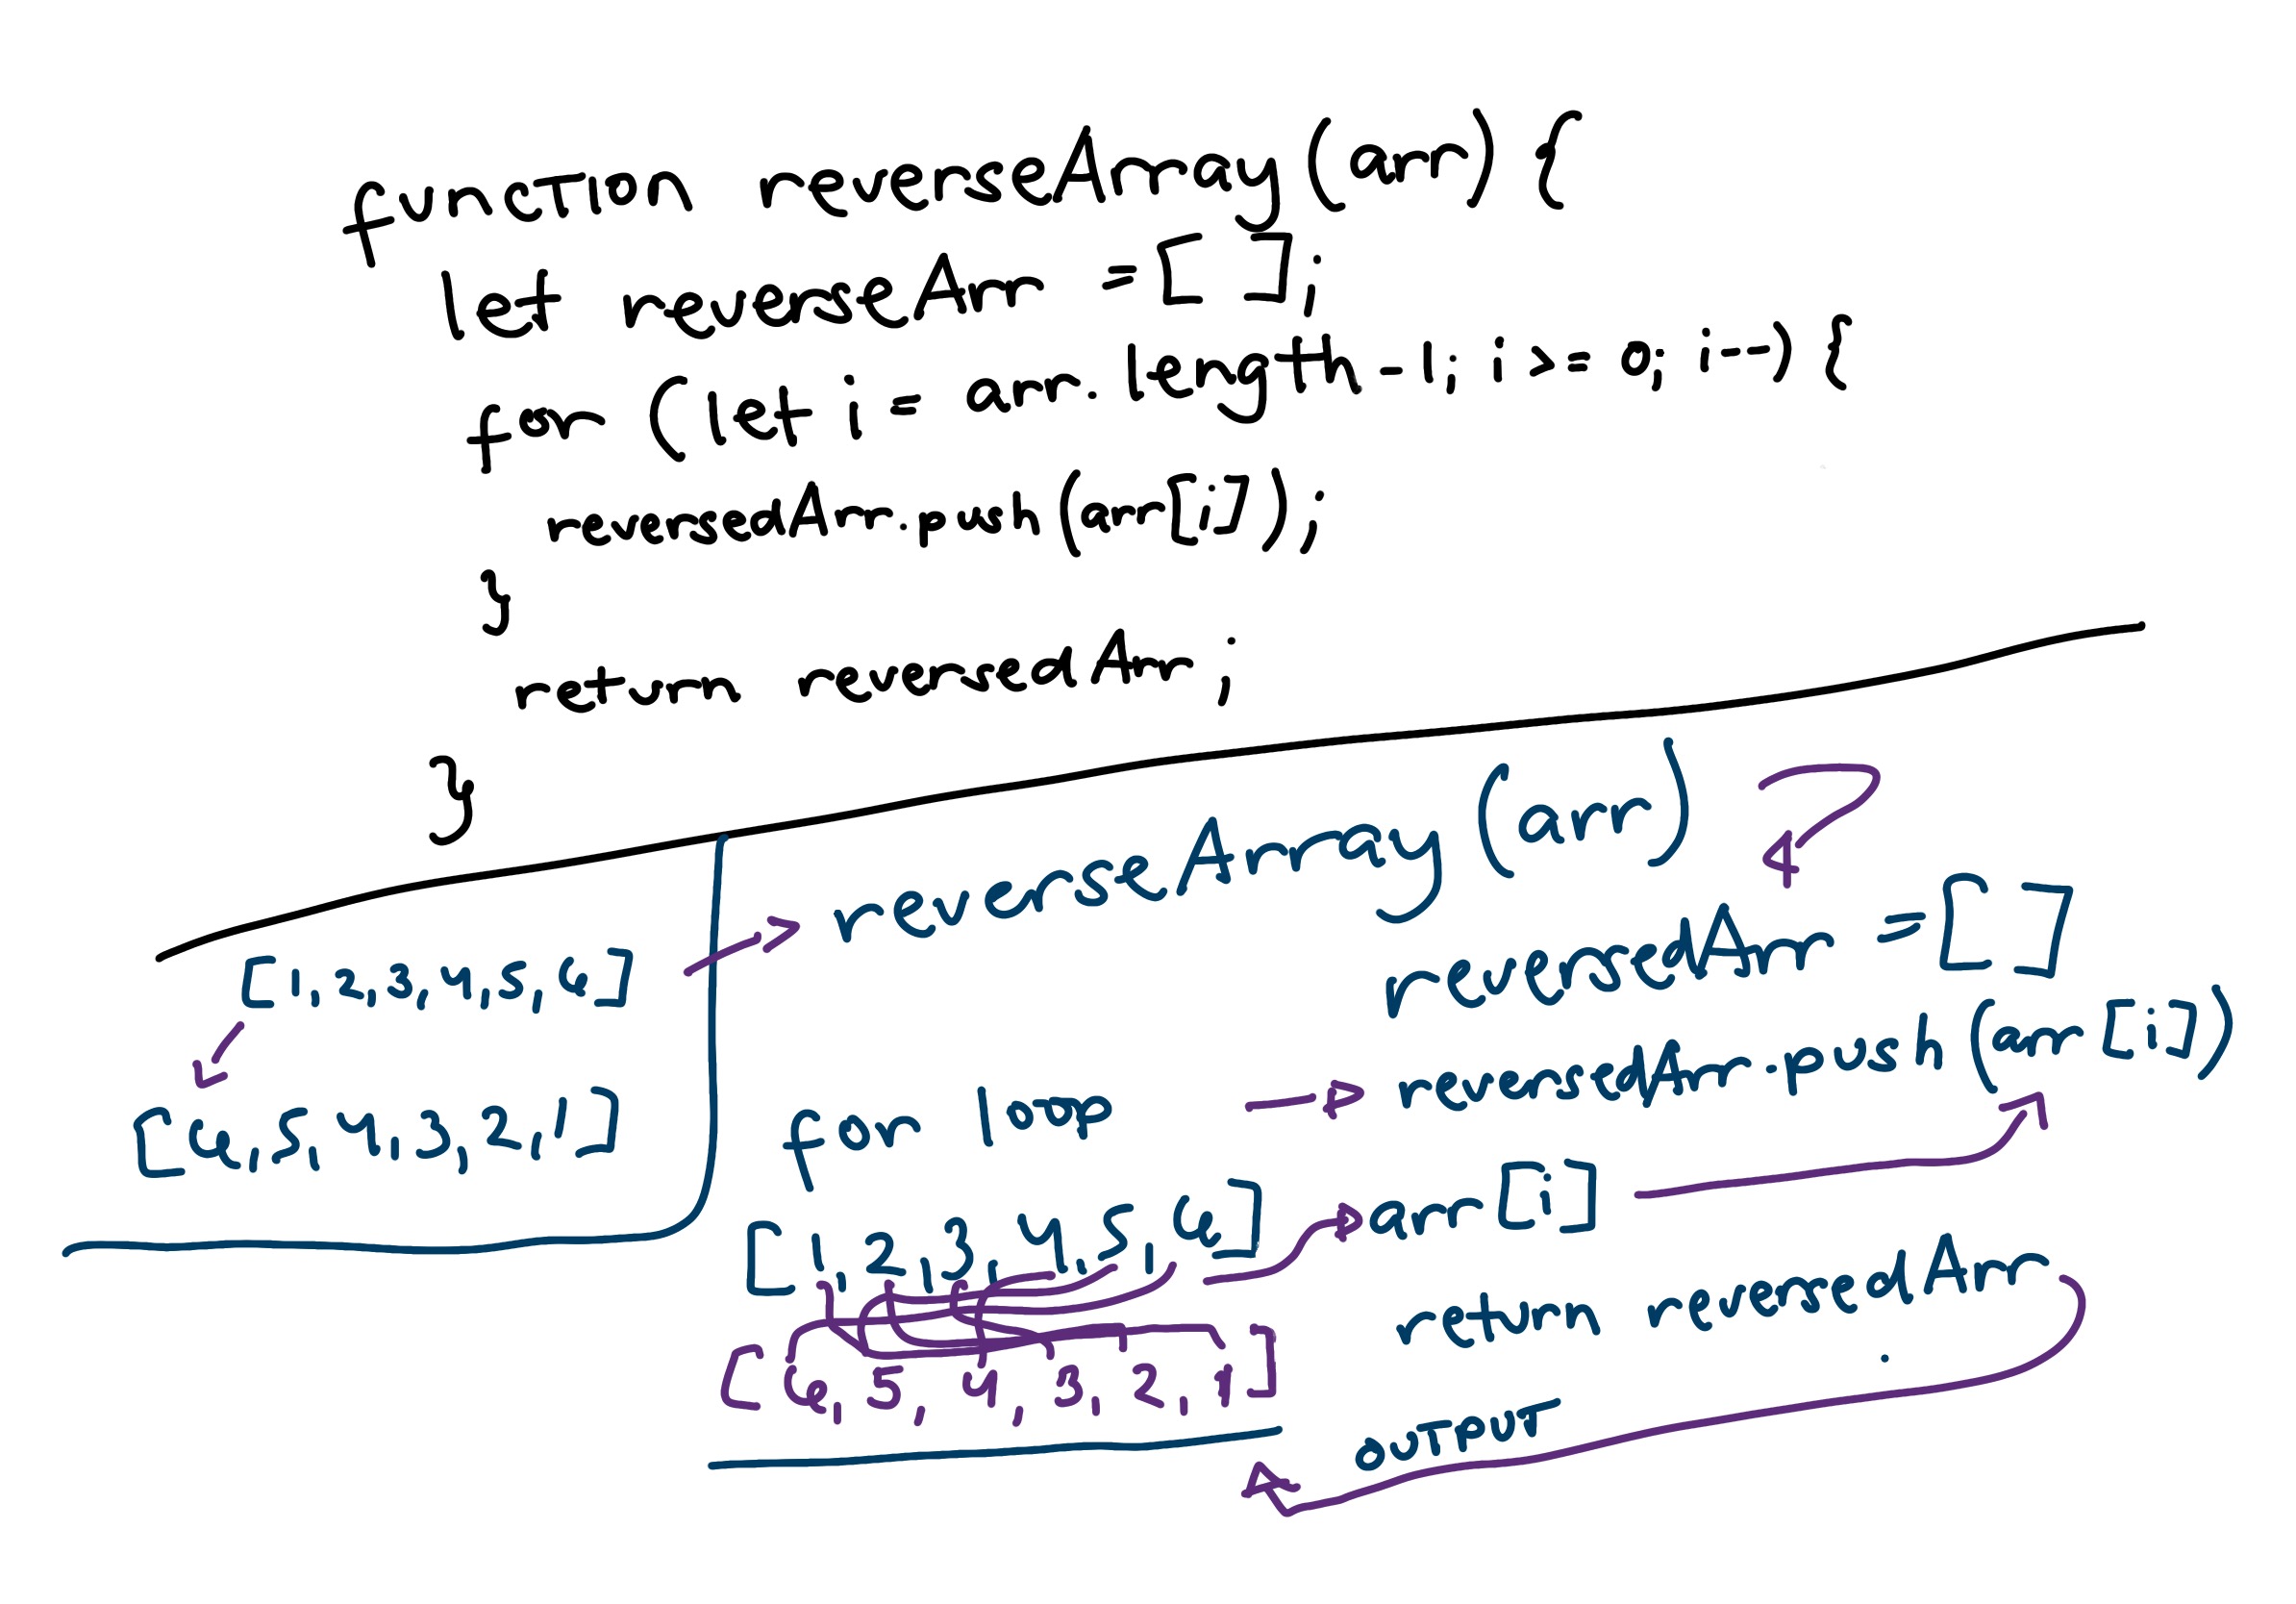 function reverseArray(arr) {
let reverseArr = [ ];
for (let i = arr.length-1; i >= 0; i--) {
reversedArr.push(arr[i]);
}
return reversedArr;
}
reverseArray(arr)
[1, 2, 3, 4, 5, 6]
reversedArr = [ ]
[6, 5, 4, 3, 2, 1]
for loop
reversedArr.push(arr[i])
[1, 2, 3, 4, 5, 6]
arr[i]
return reversedArr
[6, 5, 4, 3, 2, 1]
OUTPUT